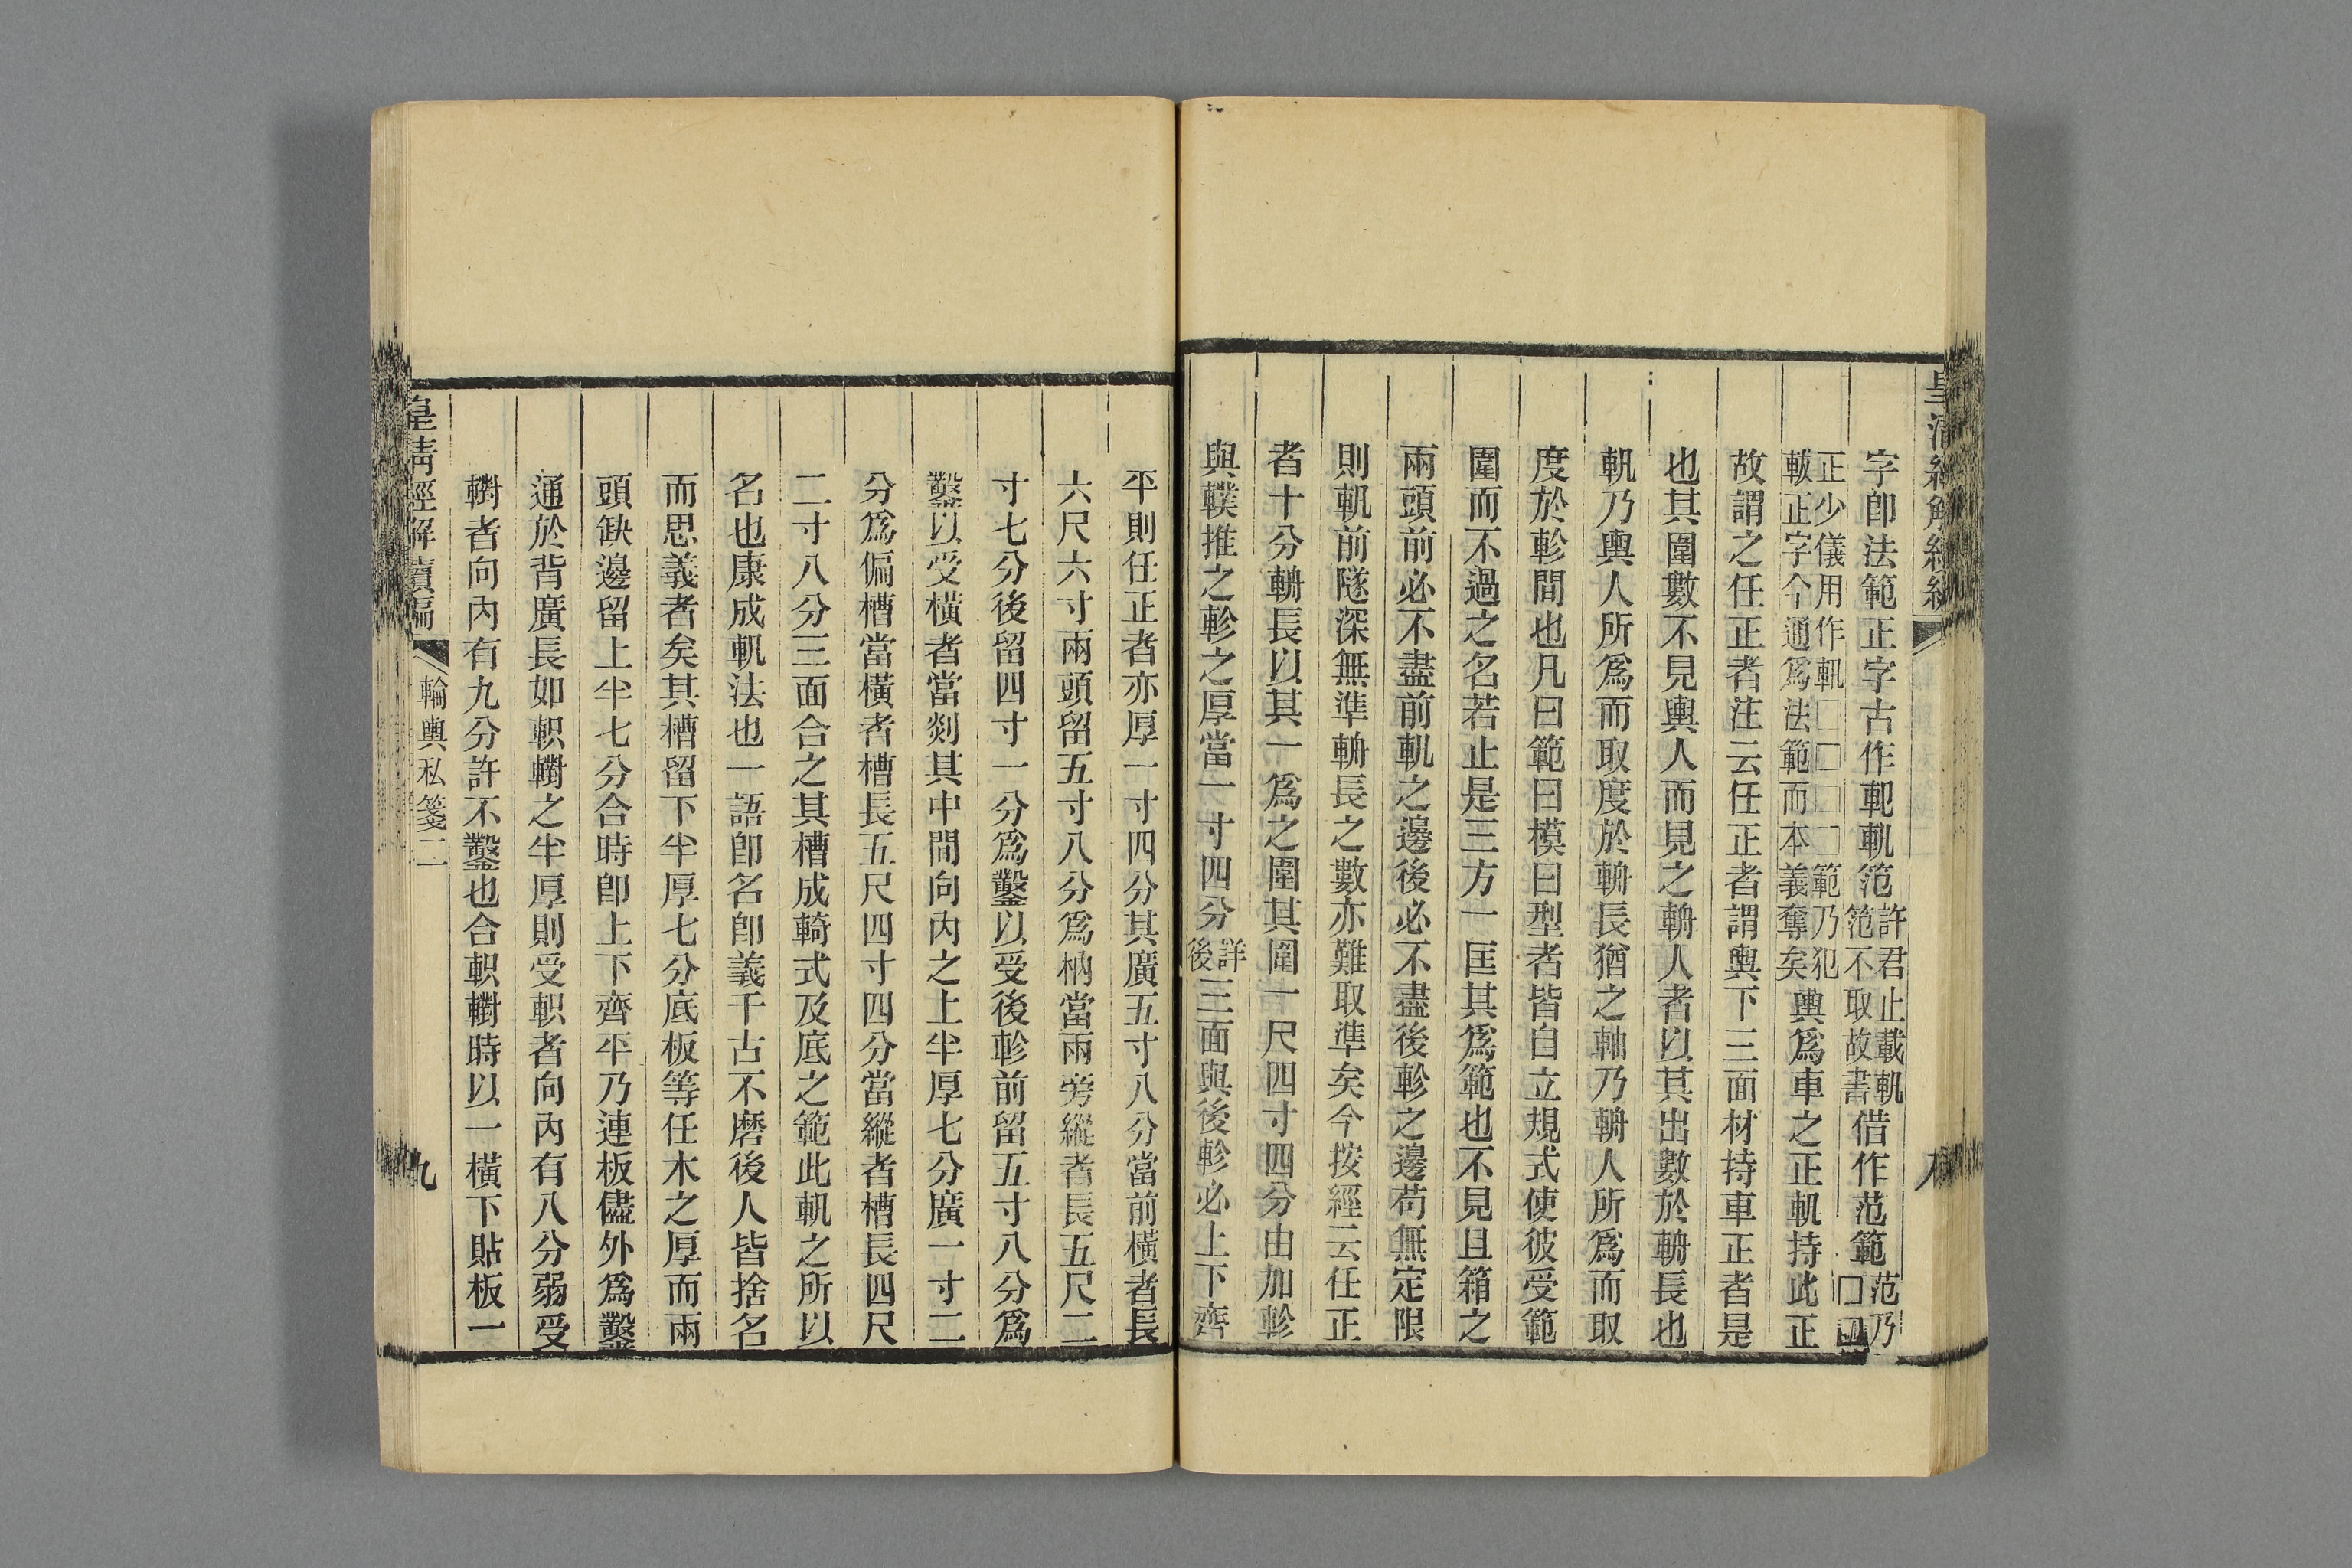 字卽法範正字古作軓軌笵許君止載軓笵不取故書借作范範范乃□
正少儀用作軓□□□□範乃犯軷正字今通爲法範而本義奪矣輿爲車之正軓持此正
故謂之任正者注云任正者謂輿下三面材持車正者是
也其圍數不見輿人而見之輈人者以其出數於輈長也
軓乃輿人所爲而取度於輈長猶之軸乃輈人所爲而取
度於軫間也凡曰範曰模曰型者皆自立規式使彼受範
圍而不過之名若止是三方一匡其爲範也不見且箱之
兩頭前必不盡前軓之邊後必不盡後軫之邊苟無定限
則軓前隧深無準輈長之數亦難取準矣今按經云任正
者十分輈長以其一爲之圍其圍一尺四寸四分由加軫
與轐推之軫之厚當一寸四分詳後三面與後軫必上下齊
平則任正者亦厚一寸四分其廣五寸八分當前橫者長
六尺六寸兩頭留五寸八分爲枘當兩旁縱者長五尺二
寸七分後留四寸一分爲鑿以受後軫前留五寸八分爲
鑿以受橫者當剡其中間向內之上半厚七分廣一寸二
分爲偏槽當橫者槽長五尺四寸四分當縱者槽長四尺
二寸八分三面合之其槽成輢式及底之範此軓之所以
名也康成軓法也一語卽名卽義千古不磨後人皆捨名
而思義者矣其槽留下半厚七分底板等任木之厚而兩
頭缺邊留上半七分合時卽上下齊平乃連板儘外爲鑿
通於背廣長如軹轛之半厚則受軹者向內有八分弱受
轛者向內有九分許不鑿也合軹轛時以一橫下貼板一
皇清經解續編
輪輿私箋二
九